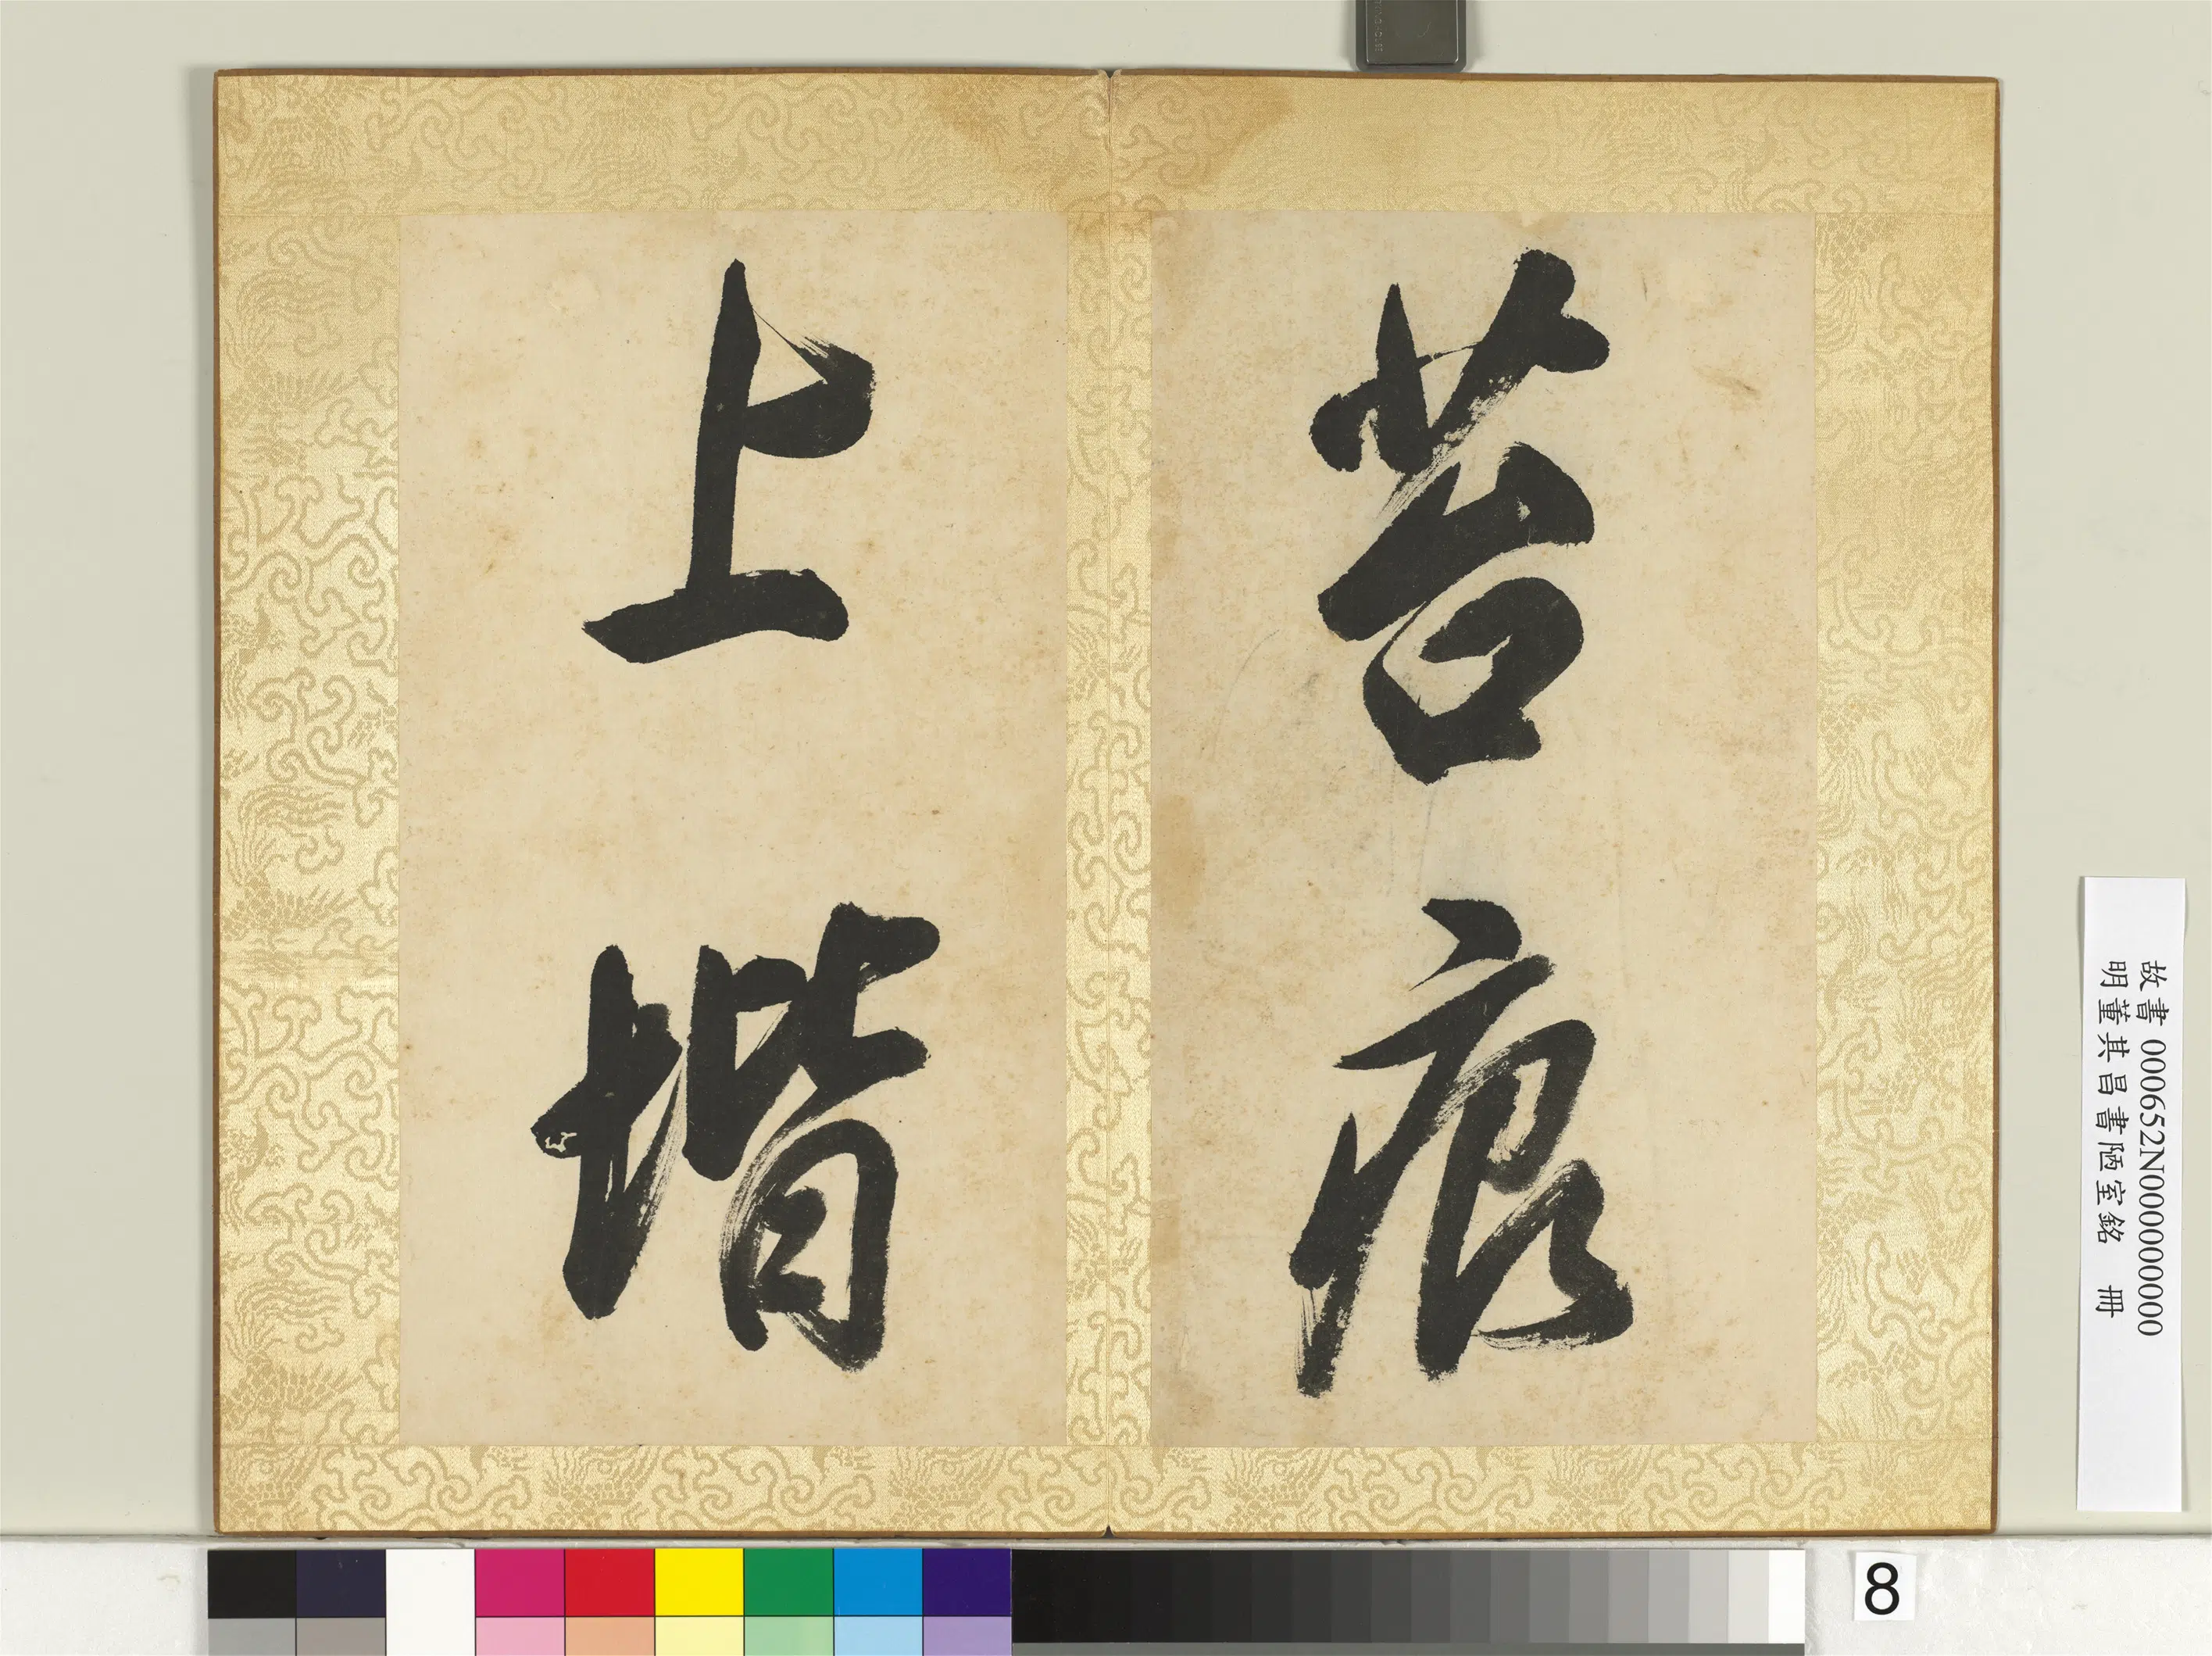 苔痕
上堦
故書 000652N000000000
明董其昌書陋室銘 冊
8